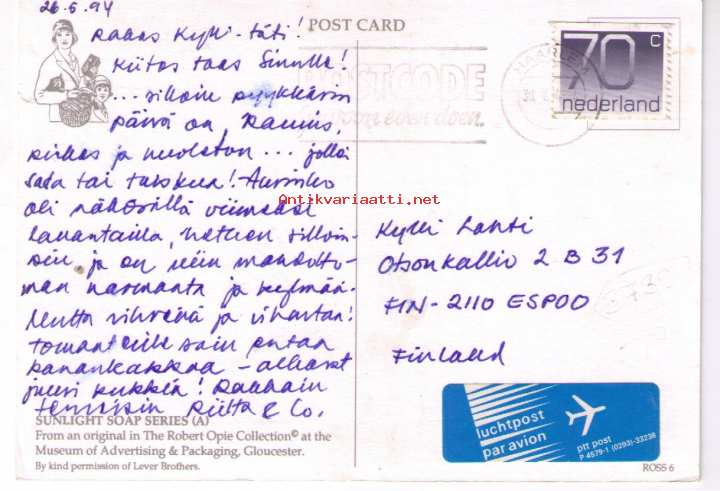 26.5.94
POST CARD
Rakas Kylli-täti!
Kiitos taas Sinulle!
...silloin pyykkärin
päivä on kaunis,
kirkas ja huoleton... jollei
sada tai tuiskua! Aurinko
oli näkösällä viimeksi
lauantaina, hetken silloin-
kin, ja on niin mahdotto-
man harmaata ja kylmää.
Mutta vihreää ja vihantaa!
sain ostaa
kanankakkaa - alkavat
juuri kukkia! Rauhaisin
terveisin Riitta & Co.
POSTCODE
even doen.
70 c
nederland
Antikvariaatti.net
Kylli Lahti
Otsonkallio 2 B 31
FIN-2110 ESPOO
Finland
luchtpost
par avion
ptt post
P 4579-1 (0293)-33236
SUNLIGHT SOAP SERIES (A)
From an original in The Robert Opie Collection© at the
Museum of Advertising & Packaging, Gloucester.
By kind permission of Lever Brothers.
ROSS 6